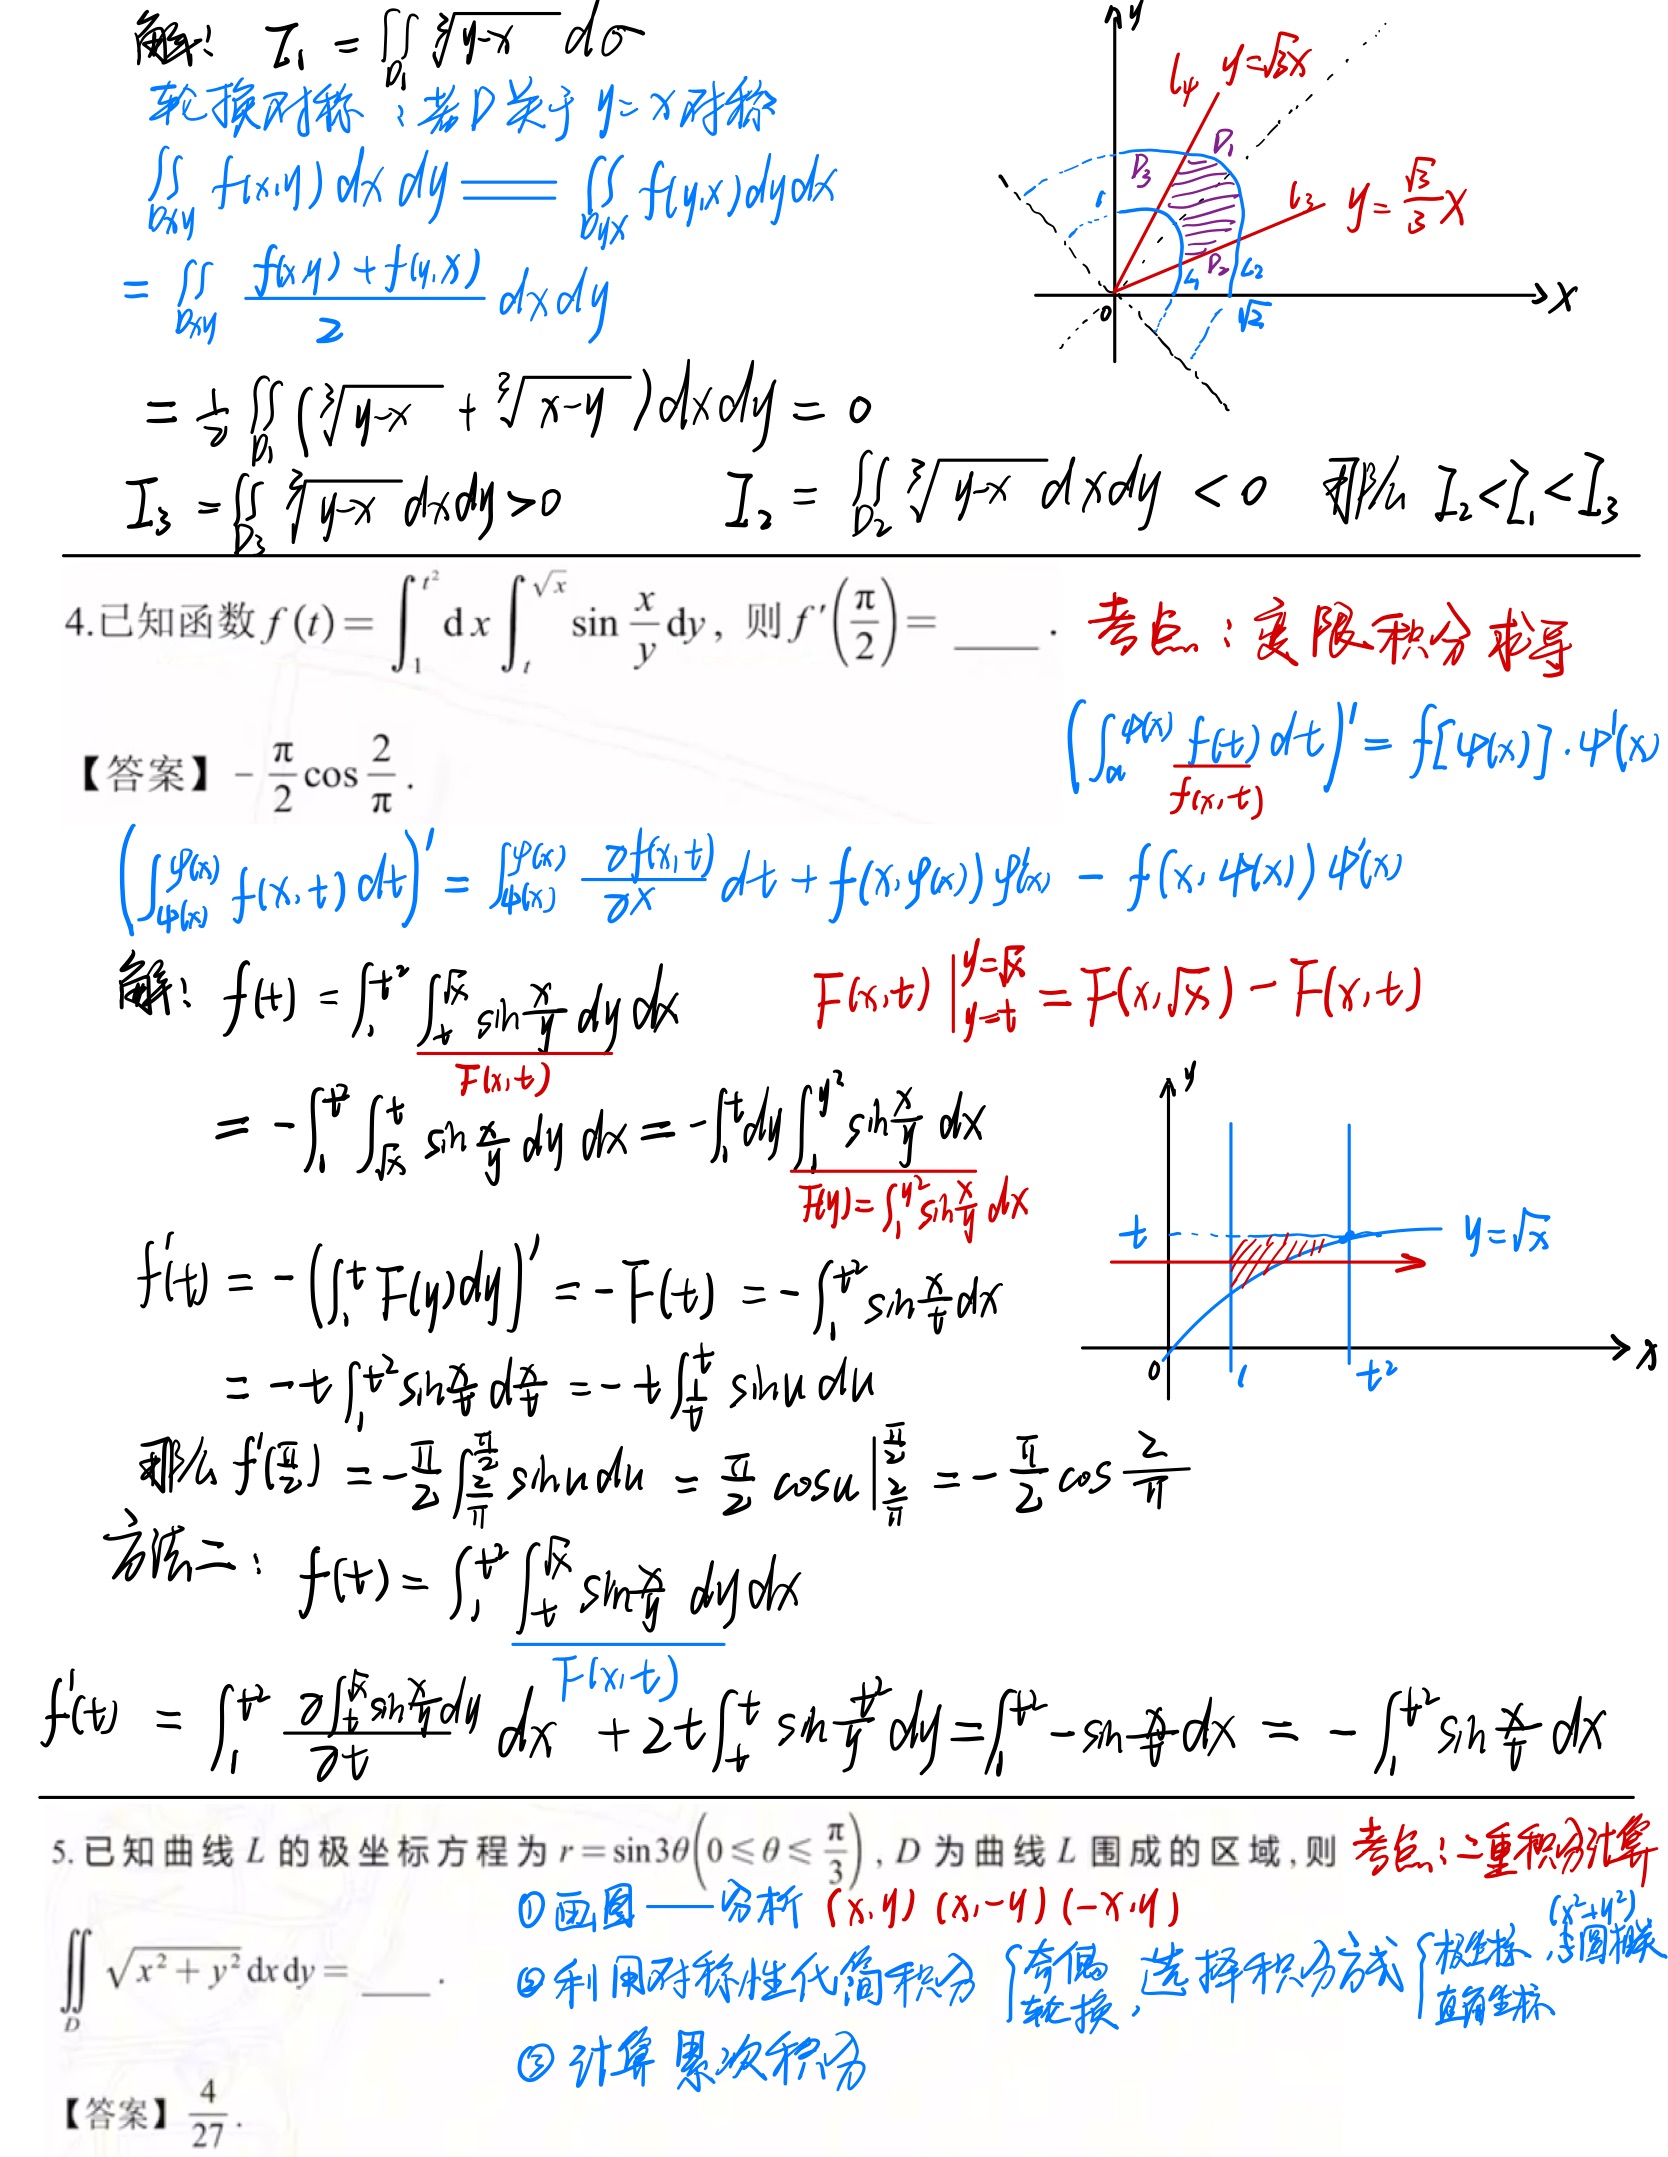 解: I₁ = ∬_{D₁} ∛(y-x) dσ
轮换对称:若D关于 y=x对称
∬_{Dxy} f(x,y) dx dy = ∬_{Dyx} f(y,x) dy dx
= ∬_{Dxy} (f(x,y)+f(y,x))/2 dx dy
= 1/2 ∬_{D₁} (∛(y-x) + ∛(x-y)) dx dy = 0
I₃ = ∬_{D₃} ∛(y-x) dx dy > 0   I₂ = ∬_{D₂} ∛(y-x) dx dy < 0   那么 I₂<I₁<I₃
y
l₄ y=√3x
D₁
D₃
l₃ y=√3/3 x
1
D₂ L₁ L₂
0 √2 x
4.已知函数 f(t) = ∫_1^{t²} dx ∫_t^{√x} sin x/y dy, 则 f′(π/2) = ____.
考点:变限积分求导
【答案】 -π/2 cos 2/π.
(∫_a^{φ(x)} f(t) dt)′ = f[φ(x)]·φ′(x)
f(x,t)
(∫_{ψ(x)}^{φ(x)} f(x,t) dt)′ = ∫_{ψ(x)}^{φ(x)} ∂f(x,t)/∂x dt + f(x,φ(x))φ′(x) - f(x,ψ(x))ψ′(x)
解: f(t) = ∫_1^{t²} ∫_t^{√x} sin x/y dy dx   F(x,t)|_{y=t}^{y=√x} = F(x,√x) - F(x,t)
F(x,t)
= -∫_1^{t²} ∫_{√x}^t sin x/y dy dx = -∫_1^t dy ∫_1^{y²} sin x/y dx
F(y) = ∫_1^{y²} sin x/y dx
f′(t) = -(∫_1^t F(y)dy)′ = -F(t) = -∫_1^{t²} sin x/t dx
= -t ∫_1^{t²} sin x/t d x/t = -t ∫_{1/t}^t sin u du
y
t y=√x
0 1 t² x
那么 f′(π/2) = -π/2 ∫_{2/π}^{π/2} sin u du = π/2 cos u |_{2/π}^{π/2} = -π/2 cos 2/π
方法二: f(t) = ∫_1^{t²} ∫_t^{√x} sin x/y dy dx
F(x,t)
f′(t) = ∫_1^{t²} ∂∫_t^{√x} sin x/y dy/∂t dx + 2t ∫_t^t sin t²/y dy = ∫_1^{t²} -sin x/t dx = -∫_1^{t²} sin x/t dx
5.已知曲线 L 的极坐标方程为 r=sin3θ(0≤θ≤π/3), D 为曲线 L 围成的区域,则
考点:二重积分计算
∬_D √(x²+y²) dxdy = ____.
①画图——分析 (x,y) (x,-y) (-x,y)
②利用对称性代简积分 {奇偶 轮换, 选择积分方式 {极坐标,与圆相关 (x²+y²) 直角坐标
③计算累次积分
【答案】 4/27.